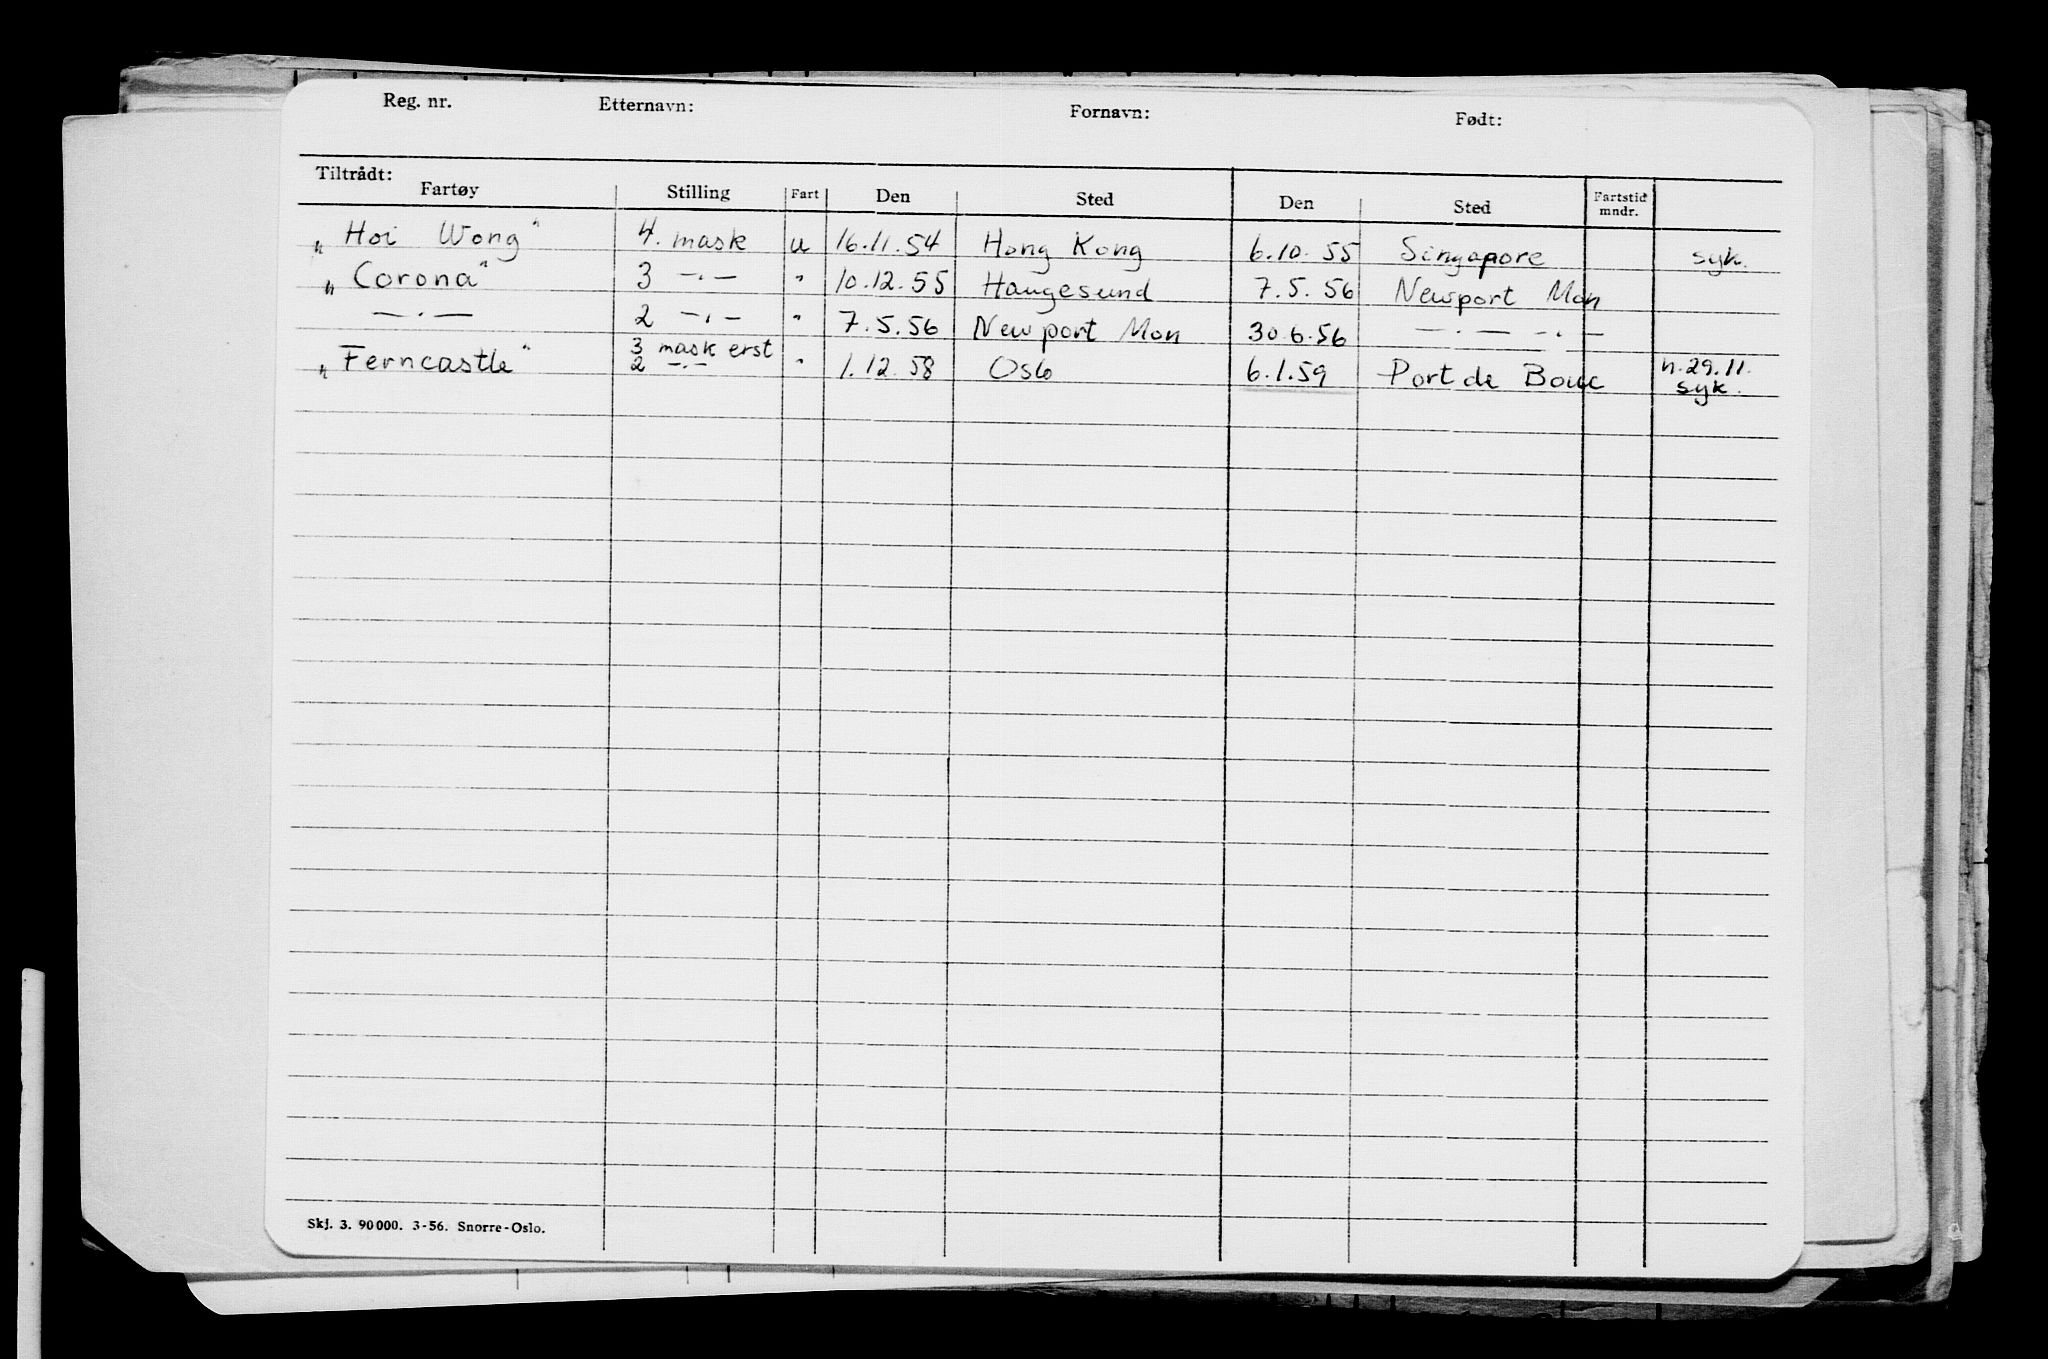 Reg. nr. Etternavn: Fornavn: Født:
Tiltrådt:
Fartøy Stilling Fart Den Sted Den Sted Fartstid mndr.
„Hoi Wong" 4. mask u 16.11.54 Hong Kong 6.10.55 Singapore syk.
„Corona" 3 —·— " 10.12.55 Haugesund 7.5.56 Newport Mon
—·— 2 —·— " 7.5.56 Newport Mon 30.6.56 —·— —·—
„Ferncastle" 3 mask erst 2 —·— " 1.12.58 Oslo 6.1.59 Port de Bouc n.29.11. syk.
Skj. 3. 90 000. 3-56. Snorre-Oslo.